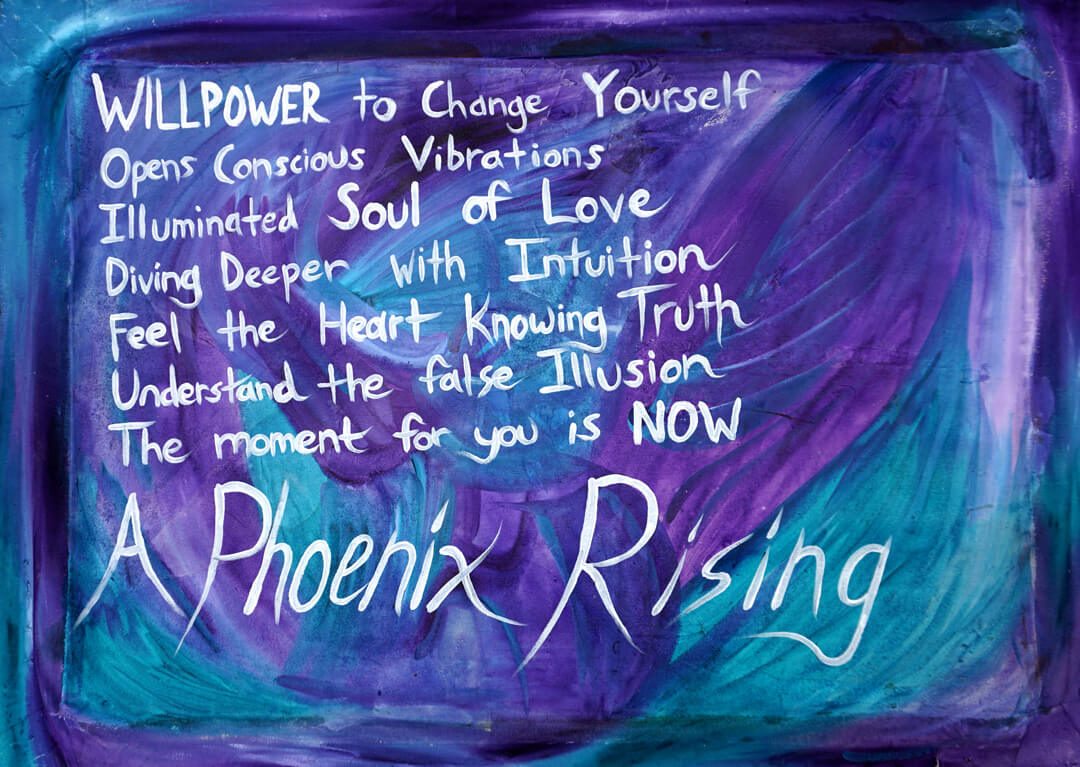 WILLPOWER to Change Yourself
Opens Conscious Vibrations
Illuminated Soul of Love
Diving Deeper with Intuition
Feel the Heart Knowing Truth
Understand the false Illusion
The moment for you is NOW
A Phoenix Rising